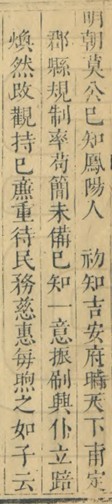 明朝莫公巳知鳳陽人 初知吉安府時天下甫定
郡縣規制率苟簡未備巳知一意振刷興仆立踣
煥然改觀持巳廉重待民務慈惠每煦之如子云